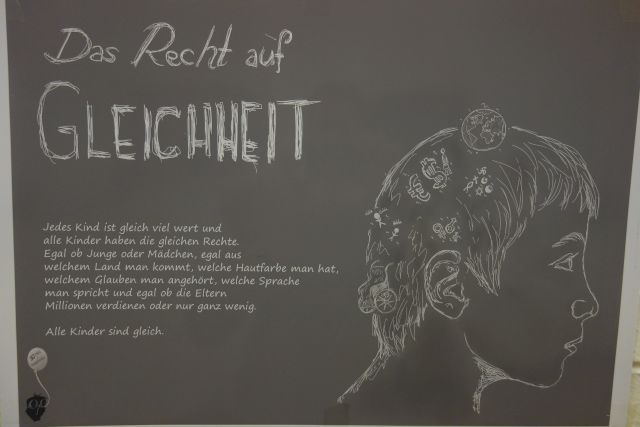 Das Recht auf
GLEICHHEIT
Jedes Kind ist gleich viel wert und
alle Kinder haben die gleichen Rechte.
Egal ob Junge oder Mädchen, egal aus
welchem Land man kommt, welche Hautfarbe man hat,
welchem Glauben man angehört, welche Sprache
man spricht und egal ob die Eltern
Millionen verdienen oder nur ganz wenig.
Alle Kinder sind gleich.